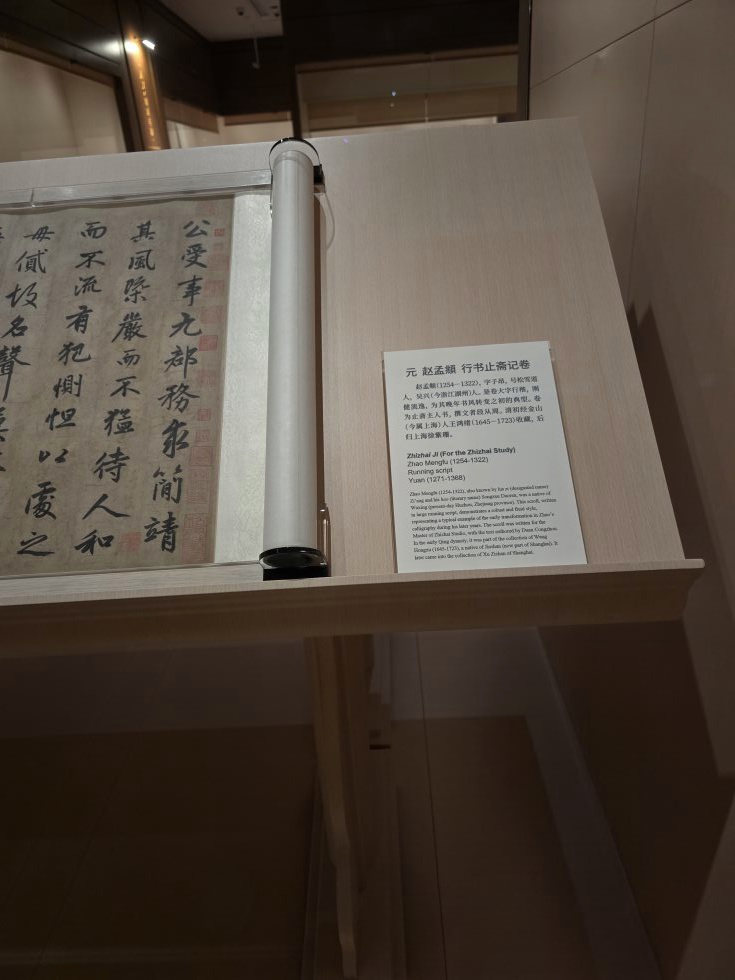 公受事九郡務求簡靖
其風槩嚴而不猛待人和
而不流有犯惻怛以處之
毋貳故名聲
元 赵孟頫 行书止斋记卷
赵孟頫（1254—1322），字子昂，号松雪道
人，吴兴（今浙江湖州）人。是卷大字行楷，刚
健流逸，为其晚年书风转变之初的典型。卷
为止斋主人书，撰文者段从周。清初经金山
（今属上海）人王鸿绪（1645—1723）收藏，后
归上海徐紫珊。
Zhizhai Ji (For the Zhizhai Study)
Zhao Mengfu (1254-1322)
Running script
Yuan (1271-1368)
Zhao Mengfu (1254-1322), also known by his zi (designated name)
Zi'ang and his hao (literary name) Songxue Daoren, was a native of
Wuxing (present-day Huzhou, Zhejiang province). This scroll, written
in large running script, demonstrates a robust and fluid style,
representing a typical example of the early transformation in Zhao's
calligraphy during his later years. The scroll was written for the
Master of Zhizhai Studio, with the text authored by Duan Congzhou.
In the early Qing dynasty, it was part of the collection of Wang
Hongxu (1645-1723), a native of Jinshan (now part of Shanghai). It
later came into the collection of Xu Zishan of Shanghai.